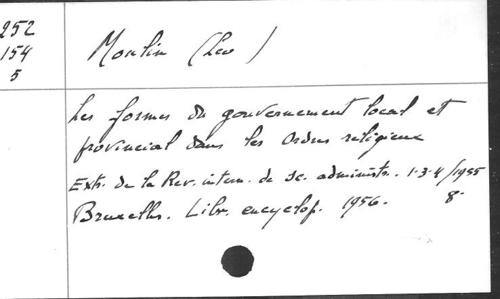 252
154
5
Moulin (Leo)
Les formes du gouvernement local et
provincial dans les Ordres religieux
Extr. de la Rev. intern. de sc. administr. 1-3-4/1955
Bruxelles. Libr. encyclop. 1956. 8-